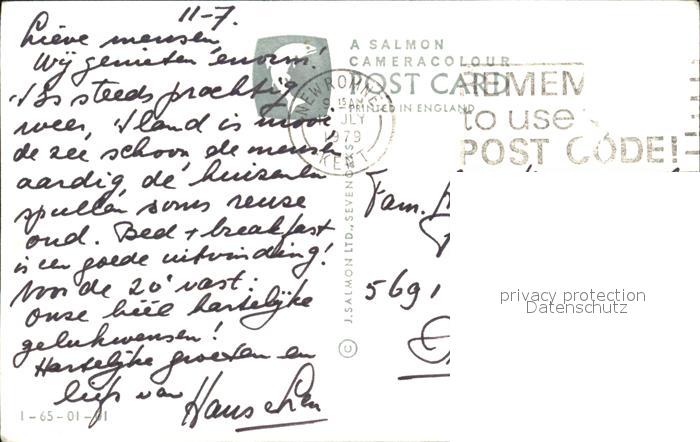 11-7.
Lieve mensen,
Wij genieten enorm!
't Is steeds prachtig
weer, 't land is mooi
de zee schoon, de mensen
aardig, de huizen en
spullen soms reuze
oud. Bed + breakfast
is een goede uitvinding!
Voor de 20e vast:
onze héél hartelijke
gelukwensen!
Hartelijke groeten en
liefs van
Hans en
1-65-01-01
A SALMON
CAMERACOLOUR
POST CARD
PRINTED IN ENGLAND
NEW ROMNEY
15 AM
JLY
1979
KENT
REMEM
to use
POST CODE!
© J. SALMON LTD., SEVENOAKS
Fam.
5691
privacy protection
Datenschutz